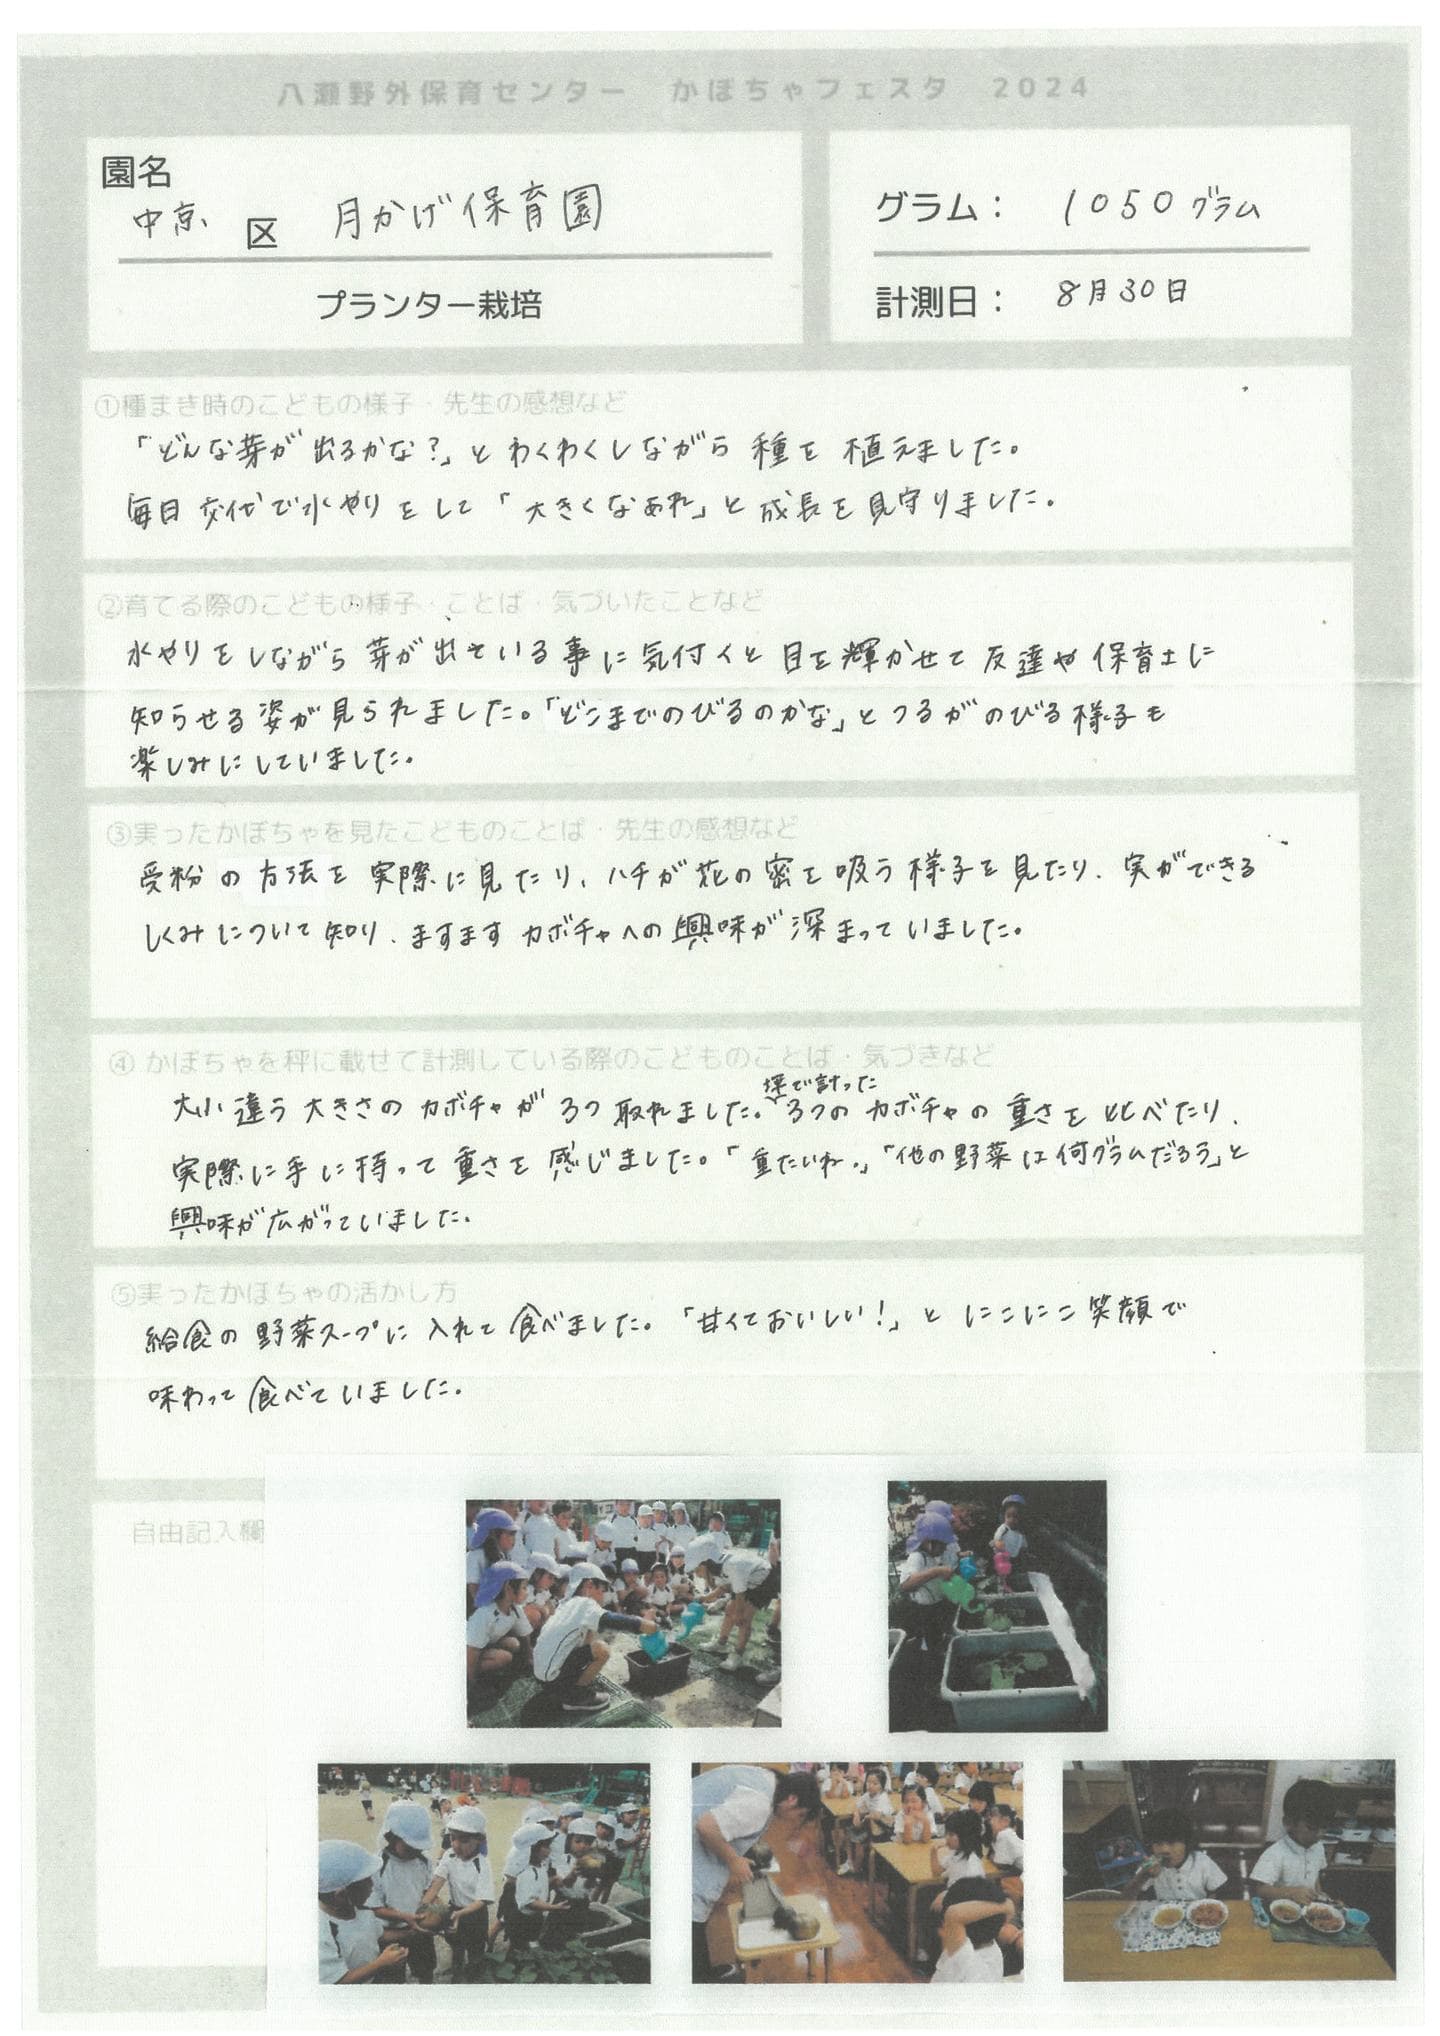 八瀬野外保育センター　かぼちゃフェスタ　2024
園名
中京 区 月かげ保育園
プランター栽培
グラム： 1050グラム
計測日： 8月30日
①種まき時のこどもの様子・先生の感想など
「どんな芽が出るかな？」とわくわくしながら種を植えました。
毎日交代で水やりをして「大きくなあれ」と成長を見守りました。
②育てる際のこどもの様子・ことば・気づいたことなど
水やりをしながら芽が出ている事に気付くと目を輝かせて友達や保育士に
知らせる姿が見られました。「どこまでのびるのかな」とつるがのびる様子も
楽しみにしていました。
③実ったかぼちゃを見たこどものことば・先生の感想など
受粉の方法を実際に見たり、ハチが花の蜜を吸う様子を見たり、実ができる
しくみについて知り、ますますカボチャへの興味が深まっていました。
④ かぼちゃを秤に載せて計測している際のこどものことば・気づきなど
で計った
大小違う大きさのカボチャが3つ取れました。3つのカボチャの重さを比べたり、
実際に手に持って重さを感じました。「重たいね。」「他の野菜は何グラムだろう」と
興味が広がっていました。
⑤実ったかぼちゃの活かし方
給食の野菜スープに入れて食べました。「甘くておいしい！」とにこにこ笑顔で
味わって食べていました。
自由記入欄